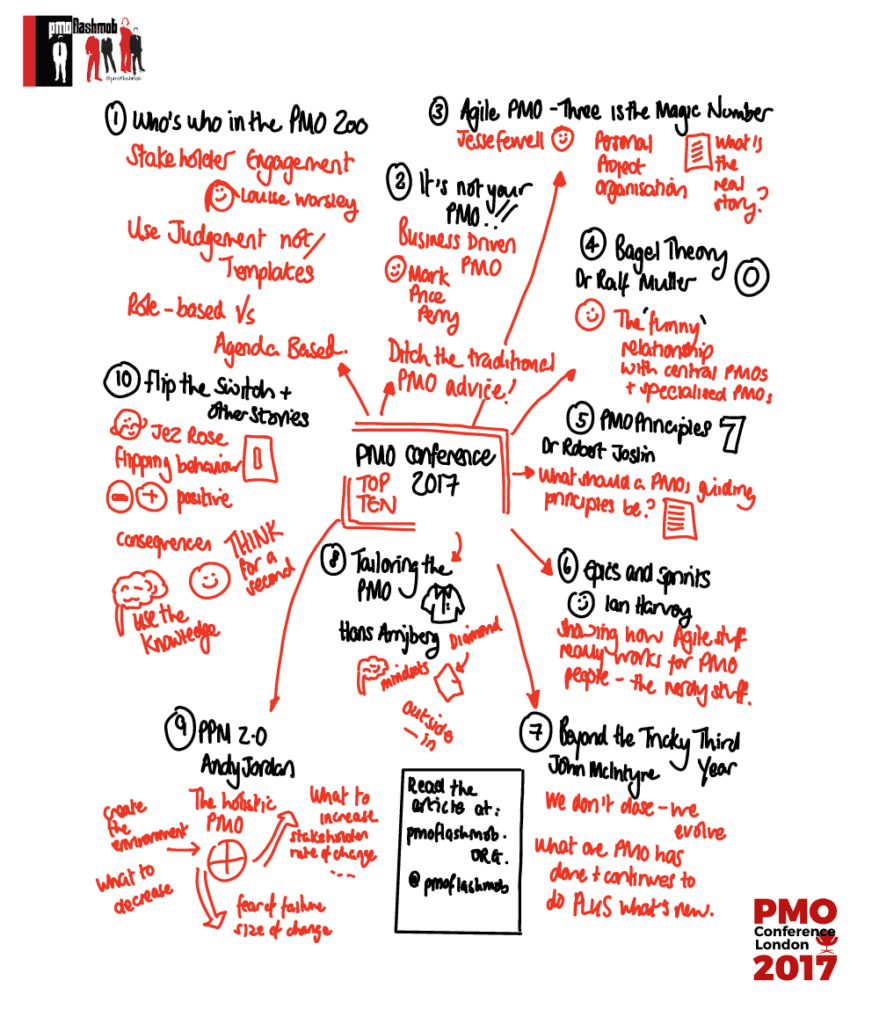 pmoflashmob
@pmoflashmob
① Who's who in the PMO Zoo
Stakeholder Engagement
Louise Worsley
Use Judgement not/
Templates
Role-based Vs
Agenda Based.
② It's not your
PMO!!!
Business Driven
PMO
Mark
Price
Perry
Ditch the traditional
PMO advice!
③ Agile PMO - Three is the Magic Number
Jesse Fewell
Personal
Project
Organisation
What is
the
real
story?
④ Bagel Theory
Dr Ralf Muller
The 'funny'
relationship
with central PMOs
+ specialised PMOs
⑤ PMO Principles 7
Dr Robert Joslin
What should a PMOs guiding
principles be?
PMO Conference
2017
TOP
TEN
⑥ Epics and Sprints
Ian Harvey
Sharing how Agile stuff
really works for PMO
people - the nerdy stuff.
⑦ Beyond the Tricky Third
Year
John McIntyre
We don't close - we
evolve
What one PMO has
done + continues to
do PLUS what's new.
⑧ Tailoring the
PMO
Hans Arnjberg
Diamond
mindsets
outside
- in
⑨ PPM 2.0
Andy Jordan
The holistic
PMO
create
the
environment
What to
decrease
What to
increase
stakeholder
rate of change
...
fear of failure
size of change
⑩ Flip the Switch +
Other Stories
Jez Rose
flipping behaviour
- + positive
consequences
THINK
for a
second
use the
knowledge
Read the
article at:
pmoflashmob.
ORG.
@pmoflashmob
PMO
Conference
London
2017